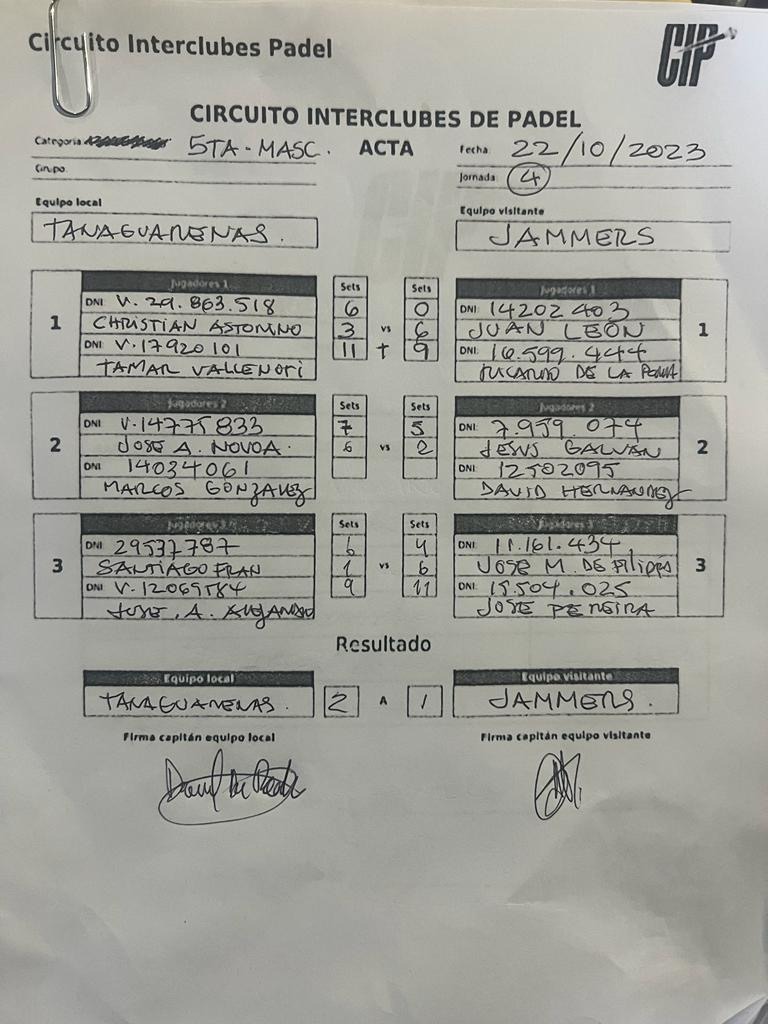 Circuito Interclubes Padel
CIP
CIRCUITO INTERCLUBES DE PADEL
Categoria 5TA - MASC.
ACTA
Fecha: 22/10/2023
Grupo:
Jornada: 4
Equipo local
TANAGUARENAS.
Equipo visitante
JAMMERS
1
Jugadores 1
DNI: V. 29.863.518
CHRISTIAN
DNI: V.17920101
TAMAR
Sets
6
3
11
vs
+
Sets
0
6
9
Jugadores 1
DNI: 14202403
JUAN LEÓN
DNI: 16.599.444
DE LA
1
2
Jugadores 2
DNI: V.14775833
JOSE A. NOVOA.
DNI: 14034061
MARCOS GONZALEZ
Sets
7
6
vs
Sets
5
2
Jugadores 2
DNI: 7.959.074
JESUS GALVAN
DNI: 12502095
DAVID HERNANDEZ
2
3
Jugadores 3
DNI: 29537787
SANTIAGO FRAN
DNI: V.12069584
JOSE. A. ALEJANDRO
Sets
6
1
9
vs
Sets
4
6
11
Jugadores 3
DNI: 11.161.434
JOSE M. DE FILIPPS
DNI: 15.504.025
JOSE PEREIRA
3
Resultado
Equipo local
TANAGUARENAS.
2
A
1
Equipo visitante
JAMMERS.
Firma capitán equipo local
Firma capitán equipo visitante